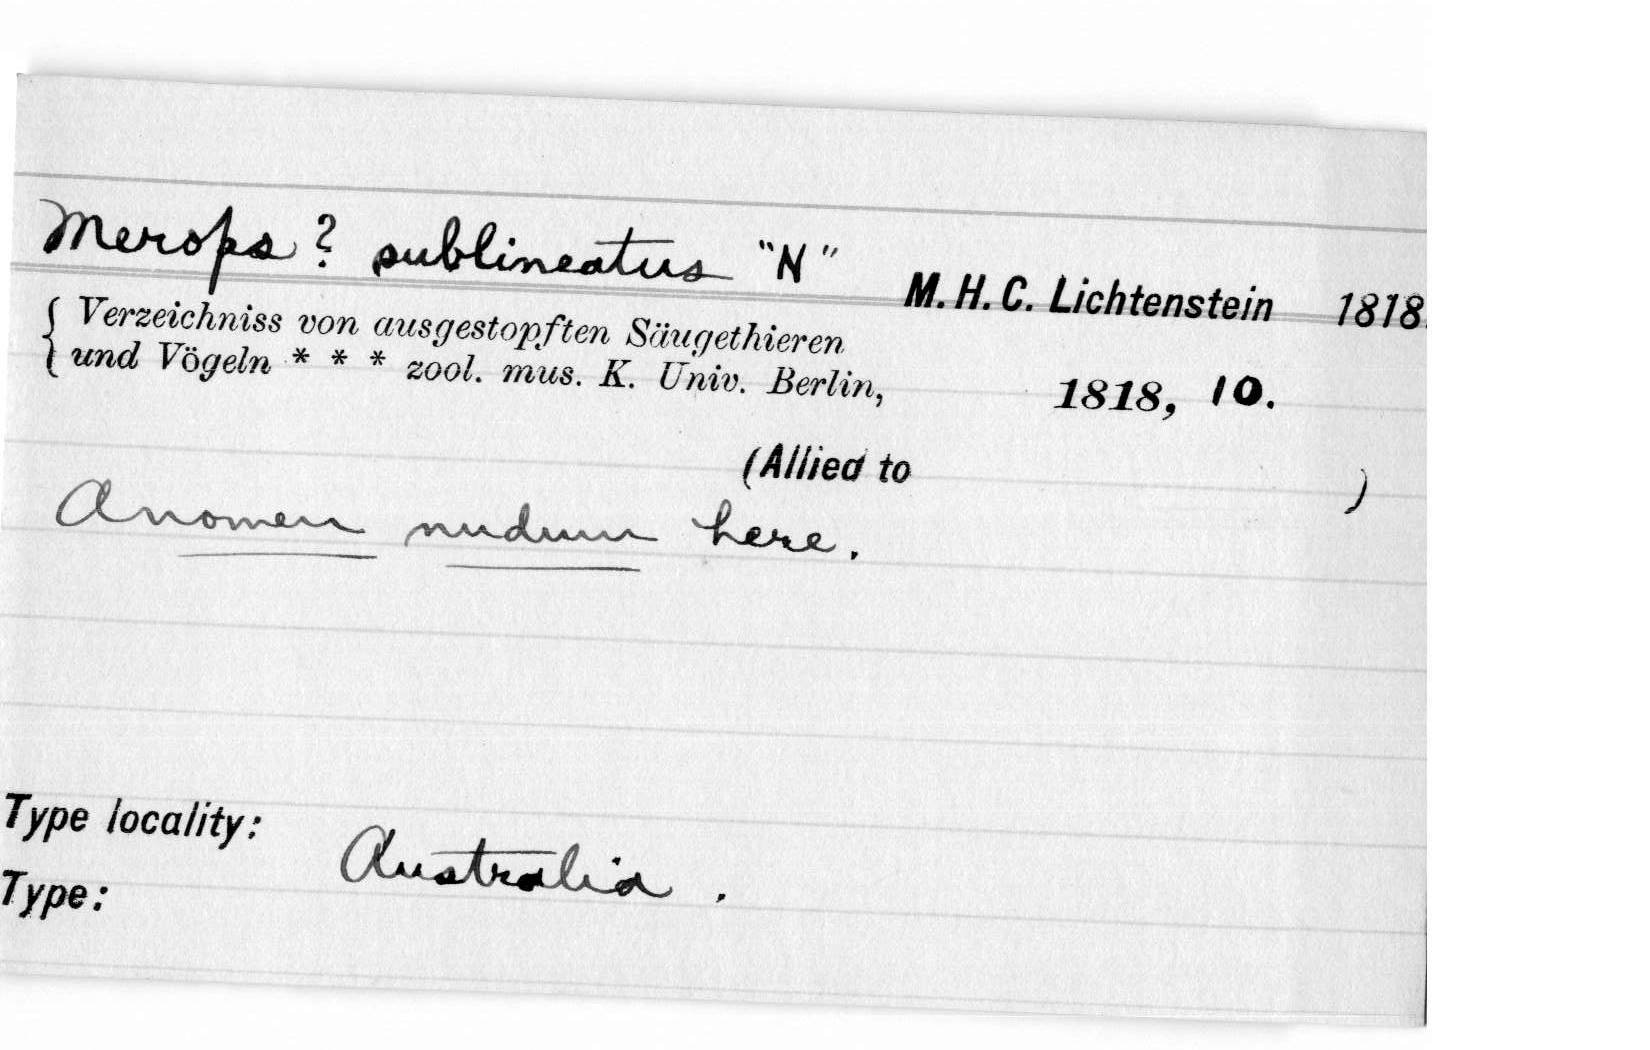 Merops ? sublineatus "N" M. H. C. Lichtenstein 1818.
{ Verzeichniss von ausgestopften Säugethieren
und Vögeln * * * zool. mus. K. Univ. Berlin, 1818, 10.
(Allied to )
A nomen nudum here.
Type locality: Australia .
Type: